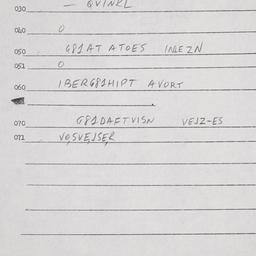 030 — QVINKL
040 0
050 G81AT ATOES INGEZN
051 0
060 IBERG81HIPT AVORT
070 G81DAFTVISN VEJZ-ES
071 VOSVEJSER